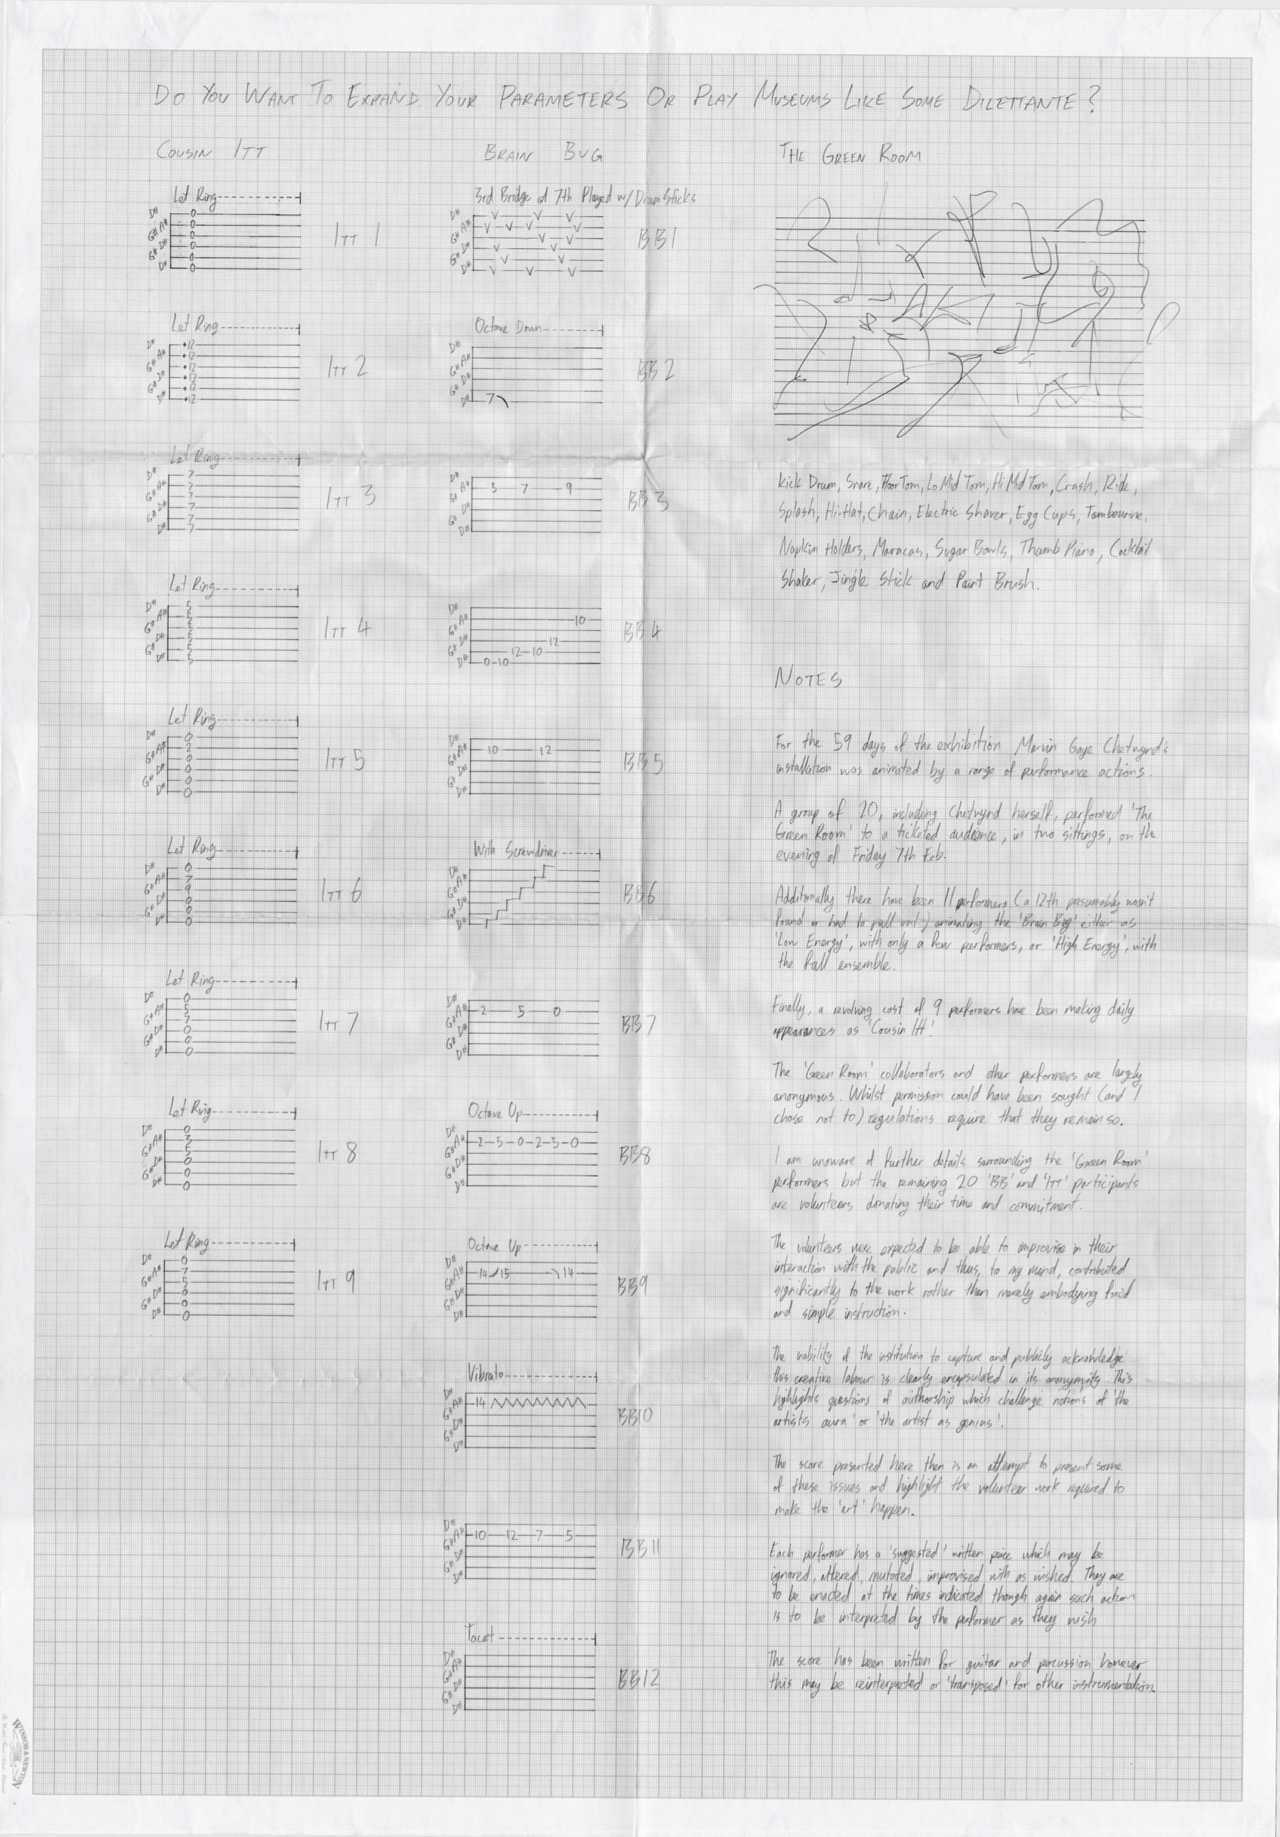 DO YOU WANT TO EXPAND YOUR PARAMETERS OR PLAY MUSEUMS LIKE SOME DILETTANTE?
COUSIN ITT
Let Ring
D# A# G# D# G# D#
0 0 0 0 0 0
ITT 1
Let Ring
D# A# G# D# G# D#
12 12 12 12 12 12
ITT 2
Let Ring
D# A# G# D# G# D#
7 7 7 7 7 7
ITT 3
Let Ring
D# A# G# D# G# D#
5 5 5 5 5 5
ITT 4
Let Ring
D# A# G# D# G# D#
0 2 0 0 0 0
ITT 5
Let Ring
D# A# G# D# G# D#
0 7 9 0 0 0
ITT 6
Let Ring
D# A# G# D# G# D#
0 5 7 0 0 0
ITT 7
Let Ring
D# A# G# D# G# D#
0 0 0 0
ITT 8
Let Ring
D# A# G# D# G# D#
0 7 5 0 0 0
ITT 9
BRAIN BUG
3rd Bridge at 7th Played w/ Drum Sticks
D# A# G# D# G# D#
BB1
Octave Down
D# A# G# D# G# D#
7
BB2
D# A# G# D# G# D#
3 7 9
BB3
D# A# G# D# G# D#
10
12
12 10
0 10
BB4
D# A# G# D# G# D#
10 12
BB5
With Screwdriver
D# A# G# D# G# D#
BB6
D# A# G# D# G# D#
2 5 0
BB7
Octave Up
D# A# G# D# G# D#
2 5 0 2 5 0
BB8
Octave Up
D# A# G# D# G# D#
14 15 14
BB9
Vibrato
D# A# G# D# G# D#
14
BB10
D# A# G# D# G# D#
10 12 7 5
BB11
Tacet
D# A# G# D# G# D#
BB12
THE GREEN ROOM
Kick Drum, Snare, Floor Tom, Lo Mid Tom, Hi Mid Tom, Crash, Ride,
Splash, Hi-Hat, Chain, Electric Shaver, Egg Cups, Tambourine,
Napkin Holders, Maracas, Sugar Bowls, Thumb Piano, Cocktail
Shaker, Jingle Stick and Paint Brush.
NOTES
For the 59 days of the exhibition Marvin Gaye Chetwynd's
installation was animated by a range of performance actions
A group of 20, including Chetwynd herself, performed 'The
Green Room' to a ticketed audience, in two sittings, on the
evening of Friday 7th Feb.
Additionally there have been 11 performers (a 12th presumably wasn't
found or had to pull out) animating the 'Brain Bug' either as
'Low Energy', with only a few performers, or 'High Energy', with
the full ensemble.
Finally, a revolving cast of 9 performers have been making daily
appearances as 'Cousin Itt'.
The 'Green Room' collaborators and other performers are largely
anonymous. Whilst permission could have been sought (and I
chose not to) regulations require that they remain so.
I am unaware of further details surrounding the 'Green Room'
performers but the remaining 20 'BB' and 'ITT' participants
are volunteers donating their time and commitment.
The volunteers were expected to be able to improvise in their
interaction with the public and thus, to my mind, contributed
significantly to the work rather than merely embodying fixed
and simple instruction.
The inability of the institution to capture and publicly acknowledge
this creative labour is clearly encapsulated in its anonymity. This
highlights questions of authorship which challenge notions of 'the
artists aura' or 'the artist as genius'.
The score presented here then is an attempt to present some
of these issues and highlight the volunteer work required to
make the 'art' happen.
Each performer has a 'suggested' written piece which may be
ignored, altered, mutated, improvised with as wished. They are
to be enacted at the times indicated though again such action
is to be interpreted by the performer as they wish
The score has been written for guitar and percussion however
this may be reinterpreted or 'transposed' for other instrumentation.
WINSOR & NEWTON